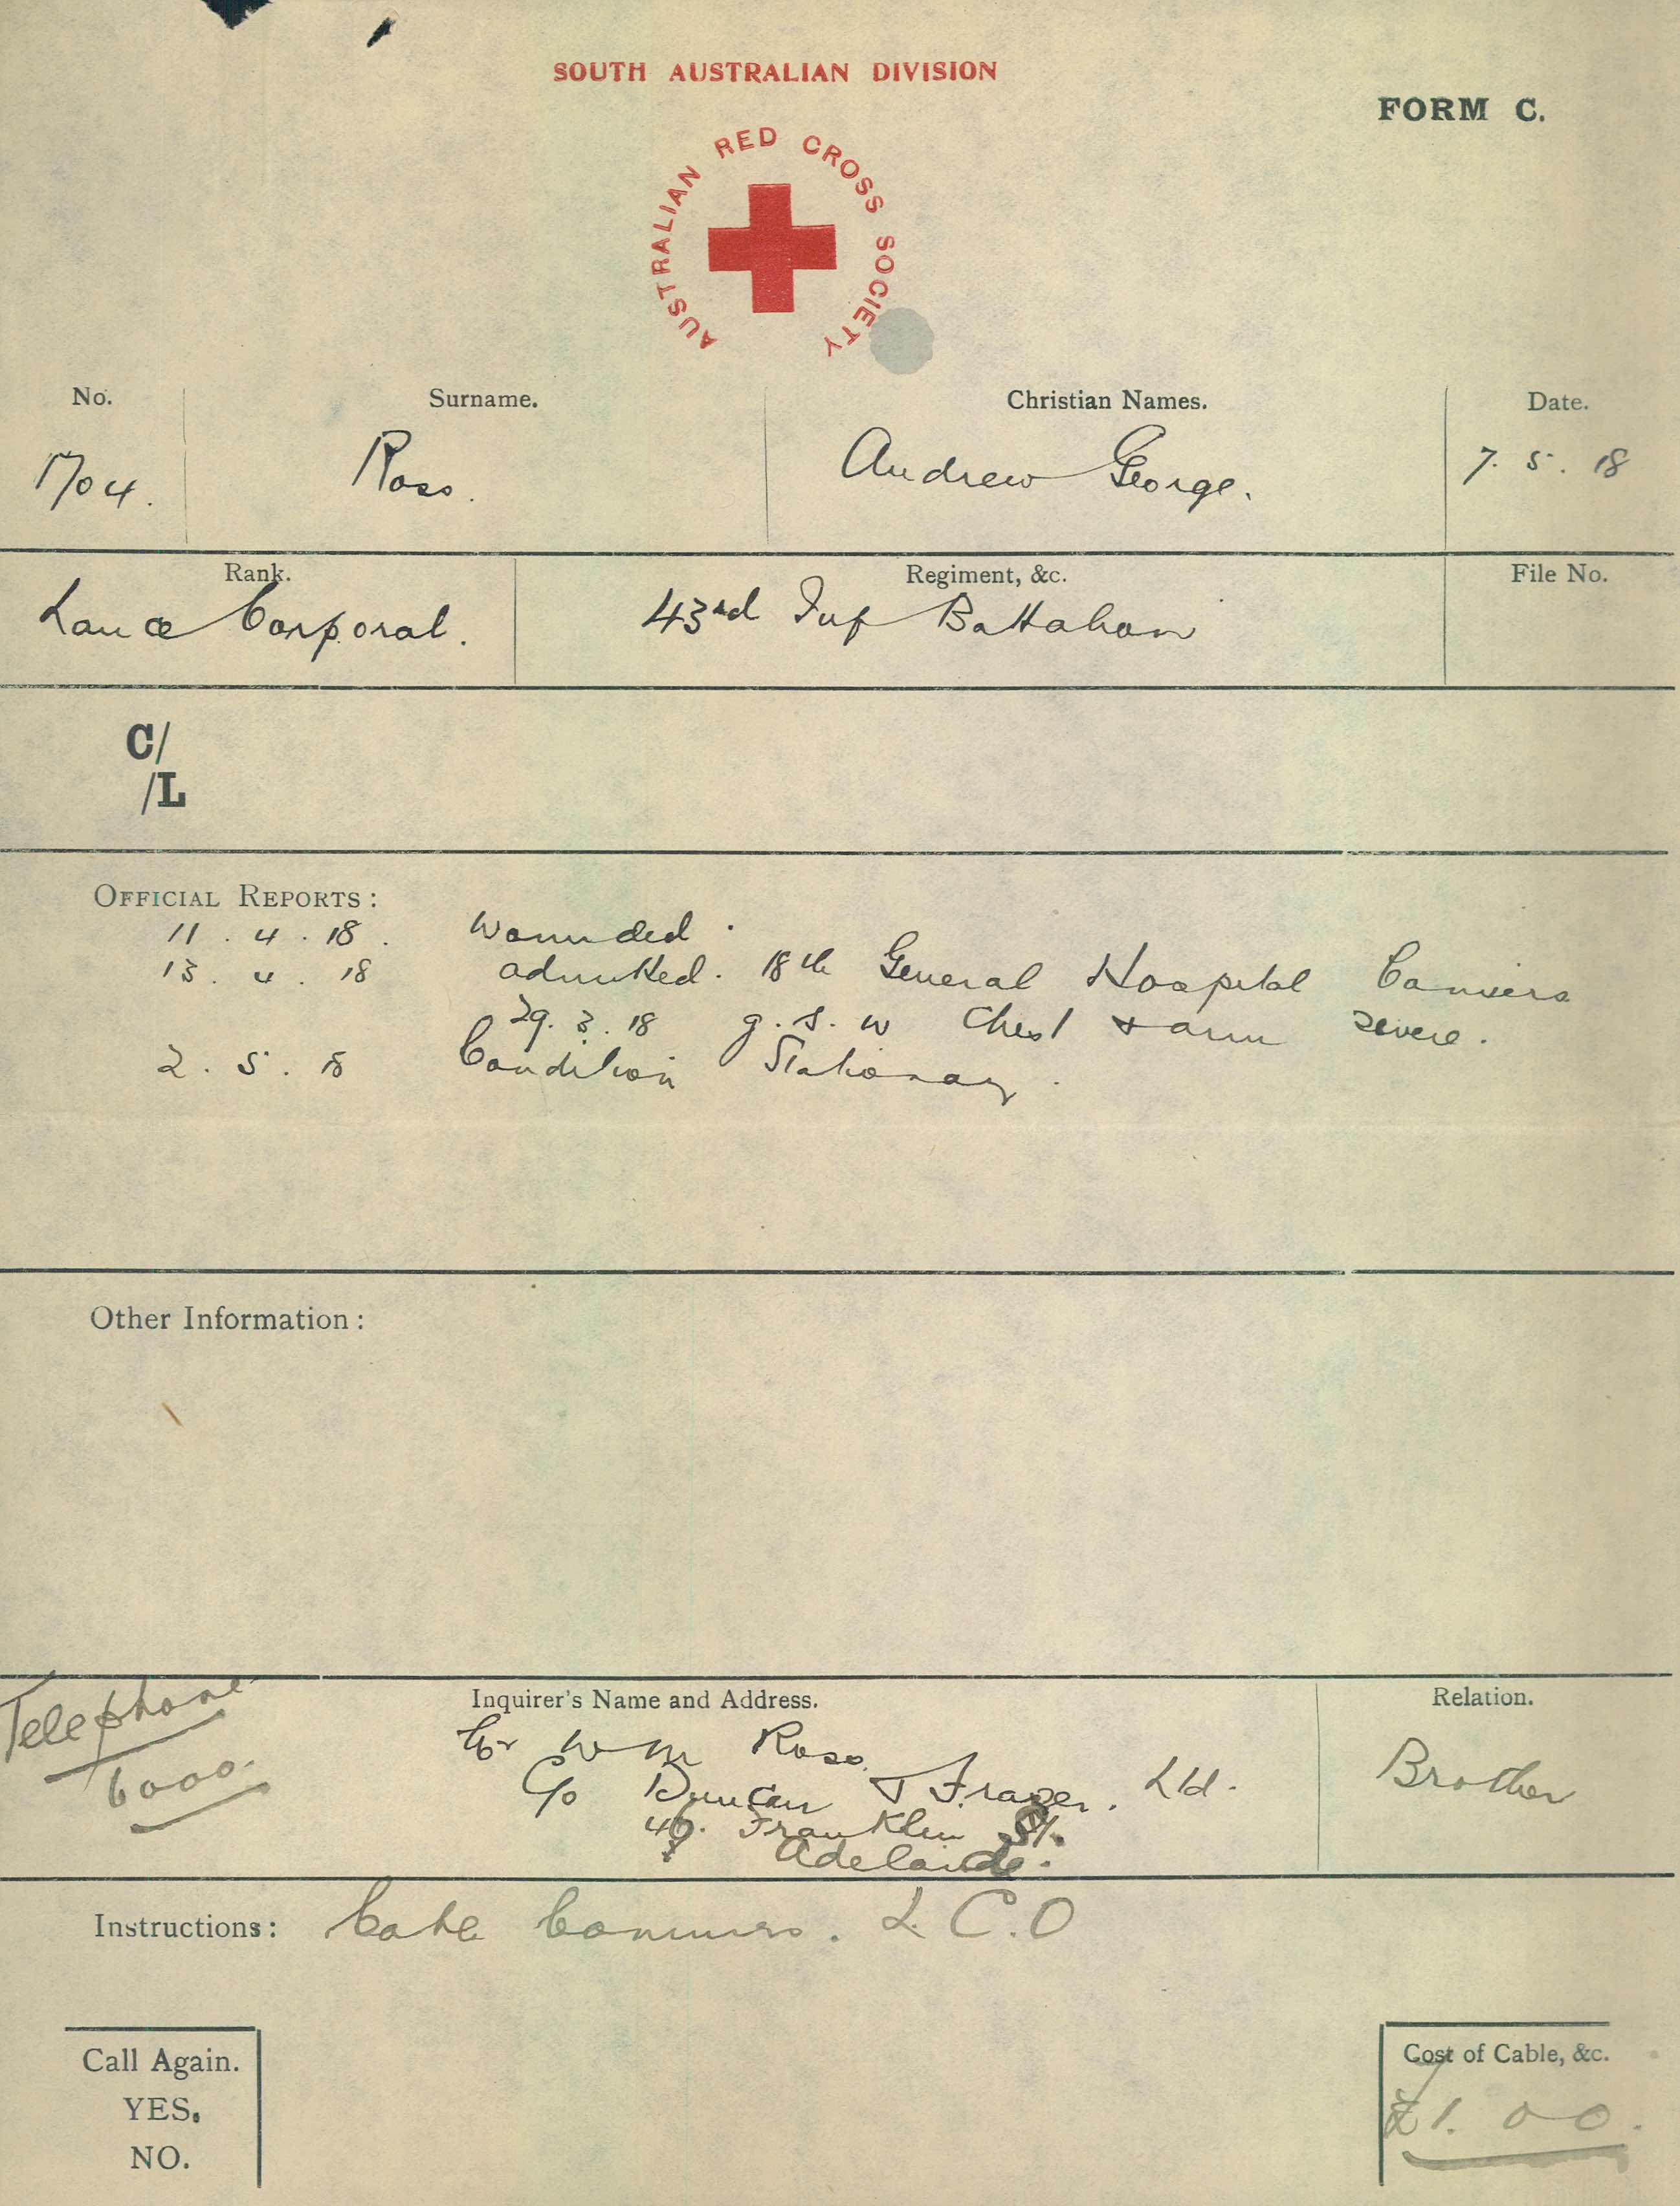 SOUTH AUSTRALIAN DIVISION
FORM C.
AUSTRALIAN RED CROSS SOCIETY
No. Surname. Christian Names. Date.
1704. Ross. Andrew George. 7. 5. 18
Rank. Regiment, &c. File No.
Lance Corporal. 43rd Inf Battalion
C/
/L
OFFICIAL REPORTS:
11. 4. 18. Wounded.
13. 4. 18 admitted. 18th General Hospital Camiers
29. 3. 18 g. s. w Chest & arm severe.
2. 5. 18 Condition Stationary.
Other Information:
Telephone
6000.
Inquirer's Name and Address. Relation.
W m Ross. Brother
C/o Duncan & Frazer. Ltd.
Franklin St.
Adelaide.
Instructions: Cable Camiers. L. C. O
Call Again. Cost of Cable, &c.
YES. £1. 0 0.
NO.